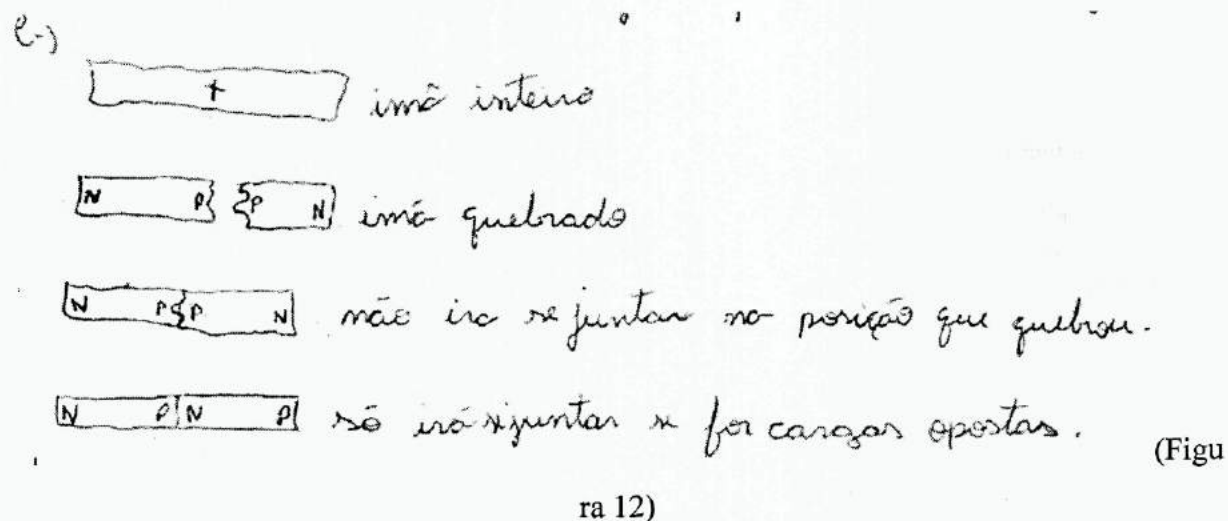 e-)
+ imã inteiro
N P P N imã quebrado
N P P N não ira se juntar na posição que quebrou.
N P N P só irá sijuntar se for cargas opostas. (Figu
ra 12)